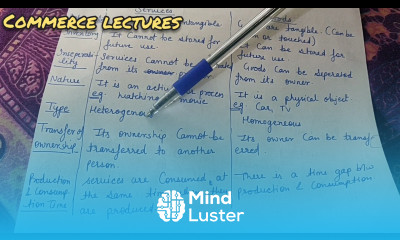 COMMERCE LECTURES
Services
Goods
intangible
are tangible. (Can be
Inventory
It Cannot be stored for
future use.
or touched)
It Can be stored for
future use.
Services Cannot be
from its
Goods Can be Separated
from its owner
Nature
It is an
process
eg Watching movie
It is a physical object
eg Car, TV
Type
Heterogeneous
Homogeneous
Transfer of
Ownership
Its ownership Cannot be
transferred to another
person.
Its owner Can be transf-
erred.
Production
& Consump-
tion Time
services are Consumed at
the same time
are produced
There is a time gap b/w
production & Consumption.
Mind
Luster